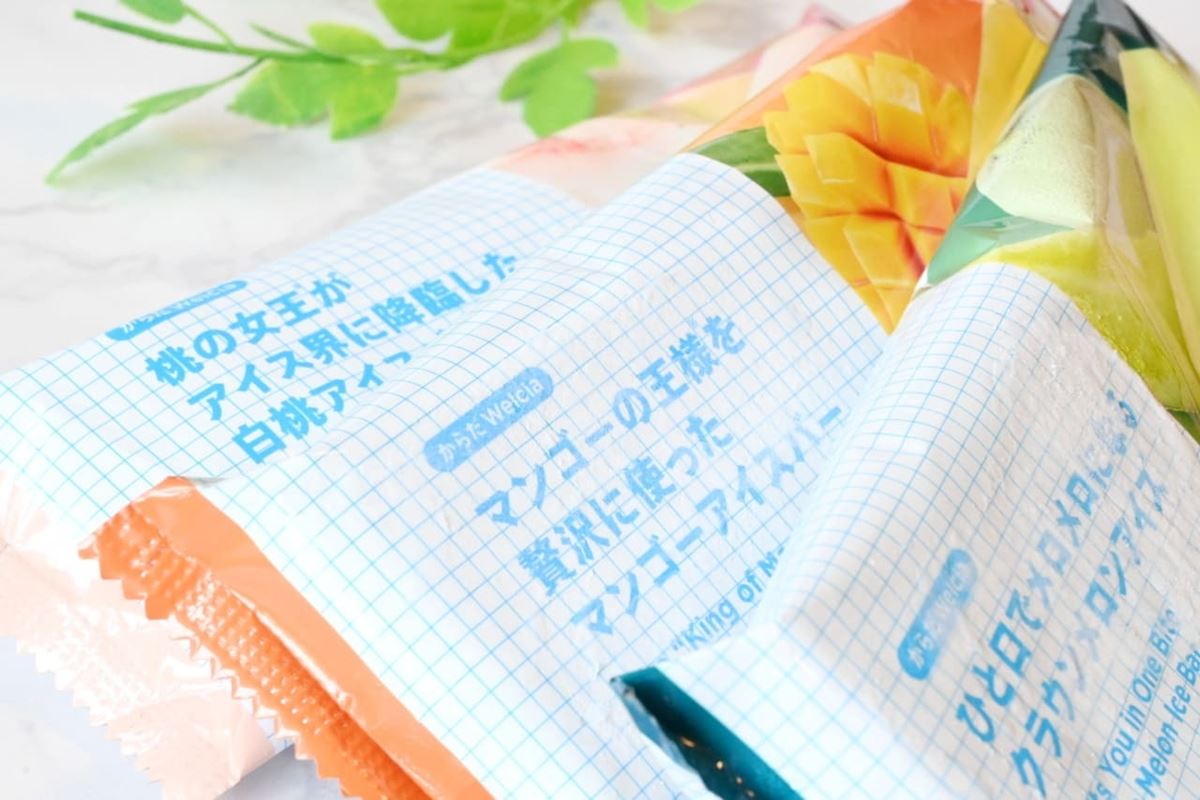 からだWelcia
桃の女王が
アイス界に降臨した
白桃アイ
からだWelcia
マンゴーの王様を
贅沢に使った
マンゴーアイスバー
"King of
からだWelcia
ひと口でメロメロになる
クラウンメロンアイス
You in One Bite
Melon Ice Bar